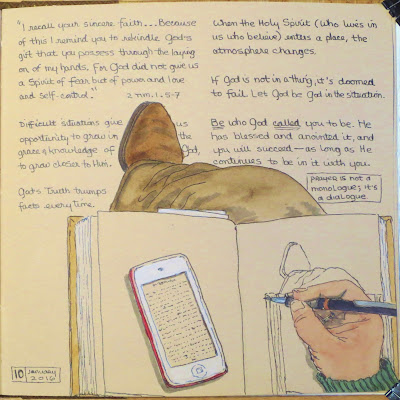 "I recall your sincere faith...Because
of this I remind you to rekindle God's
gift that you possess through the laying
on of my hands. For God did not give us
a Spirit of fear but of power and love
and self-control."
2 TIM. 1:5-7
Difficult situations give us
opportunity to grow in the
grace & knowledge of God,
to grow closer to Him.
God's Truth trumps
facts every time.
When the Holy Spirit (Who lives in
us who believe) enters a place, the
atmosphere changes.
If God is not in a thing, it's doomed
to fail. Let God be God in the situation.
Be who God called you to be. He
has blessed and anointed it, and
you will succeed—as long as He
continues to be in it with you.
PRAYER IS NOT A
MONOLOGUE; IT'S
A DIALOGUE.
10 JANUARY
2016